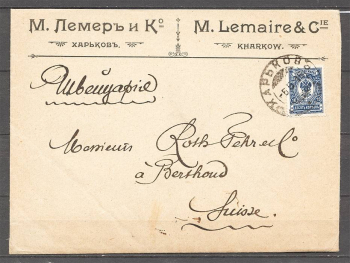 М. Лемеръ и Ко. M. Lemaire & CIE
ХАРЬКОВЪ. KHARKOW.
Швейцарія
ХАРЬКОВЪ
Monsieur Roth-Fehr & Co
à Berthoud
Suisse.